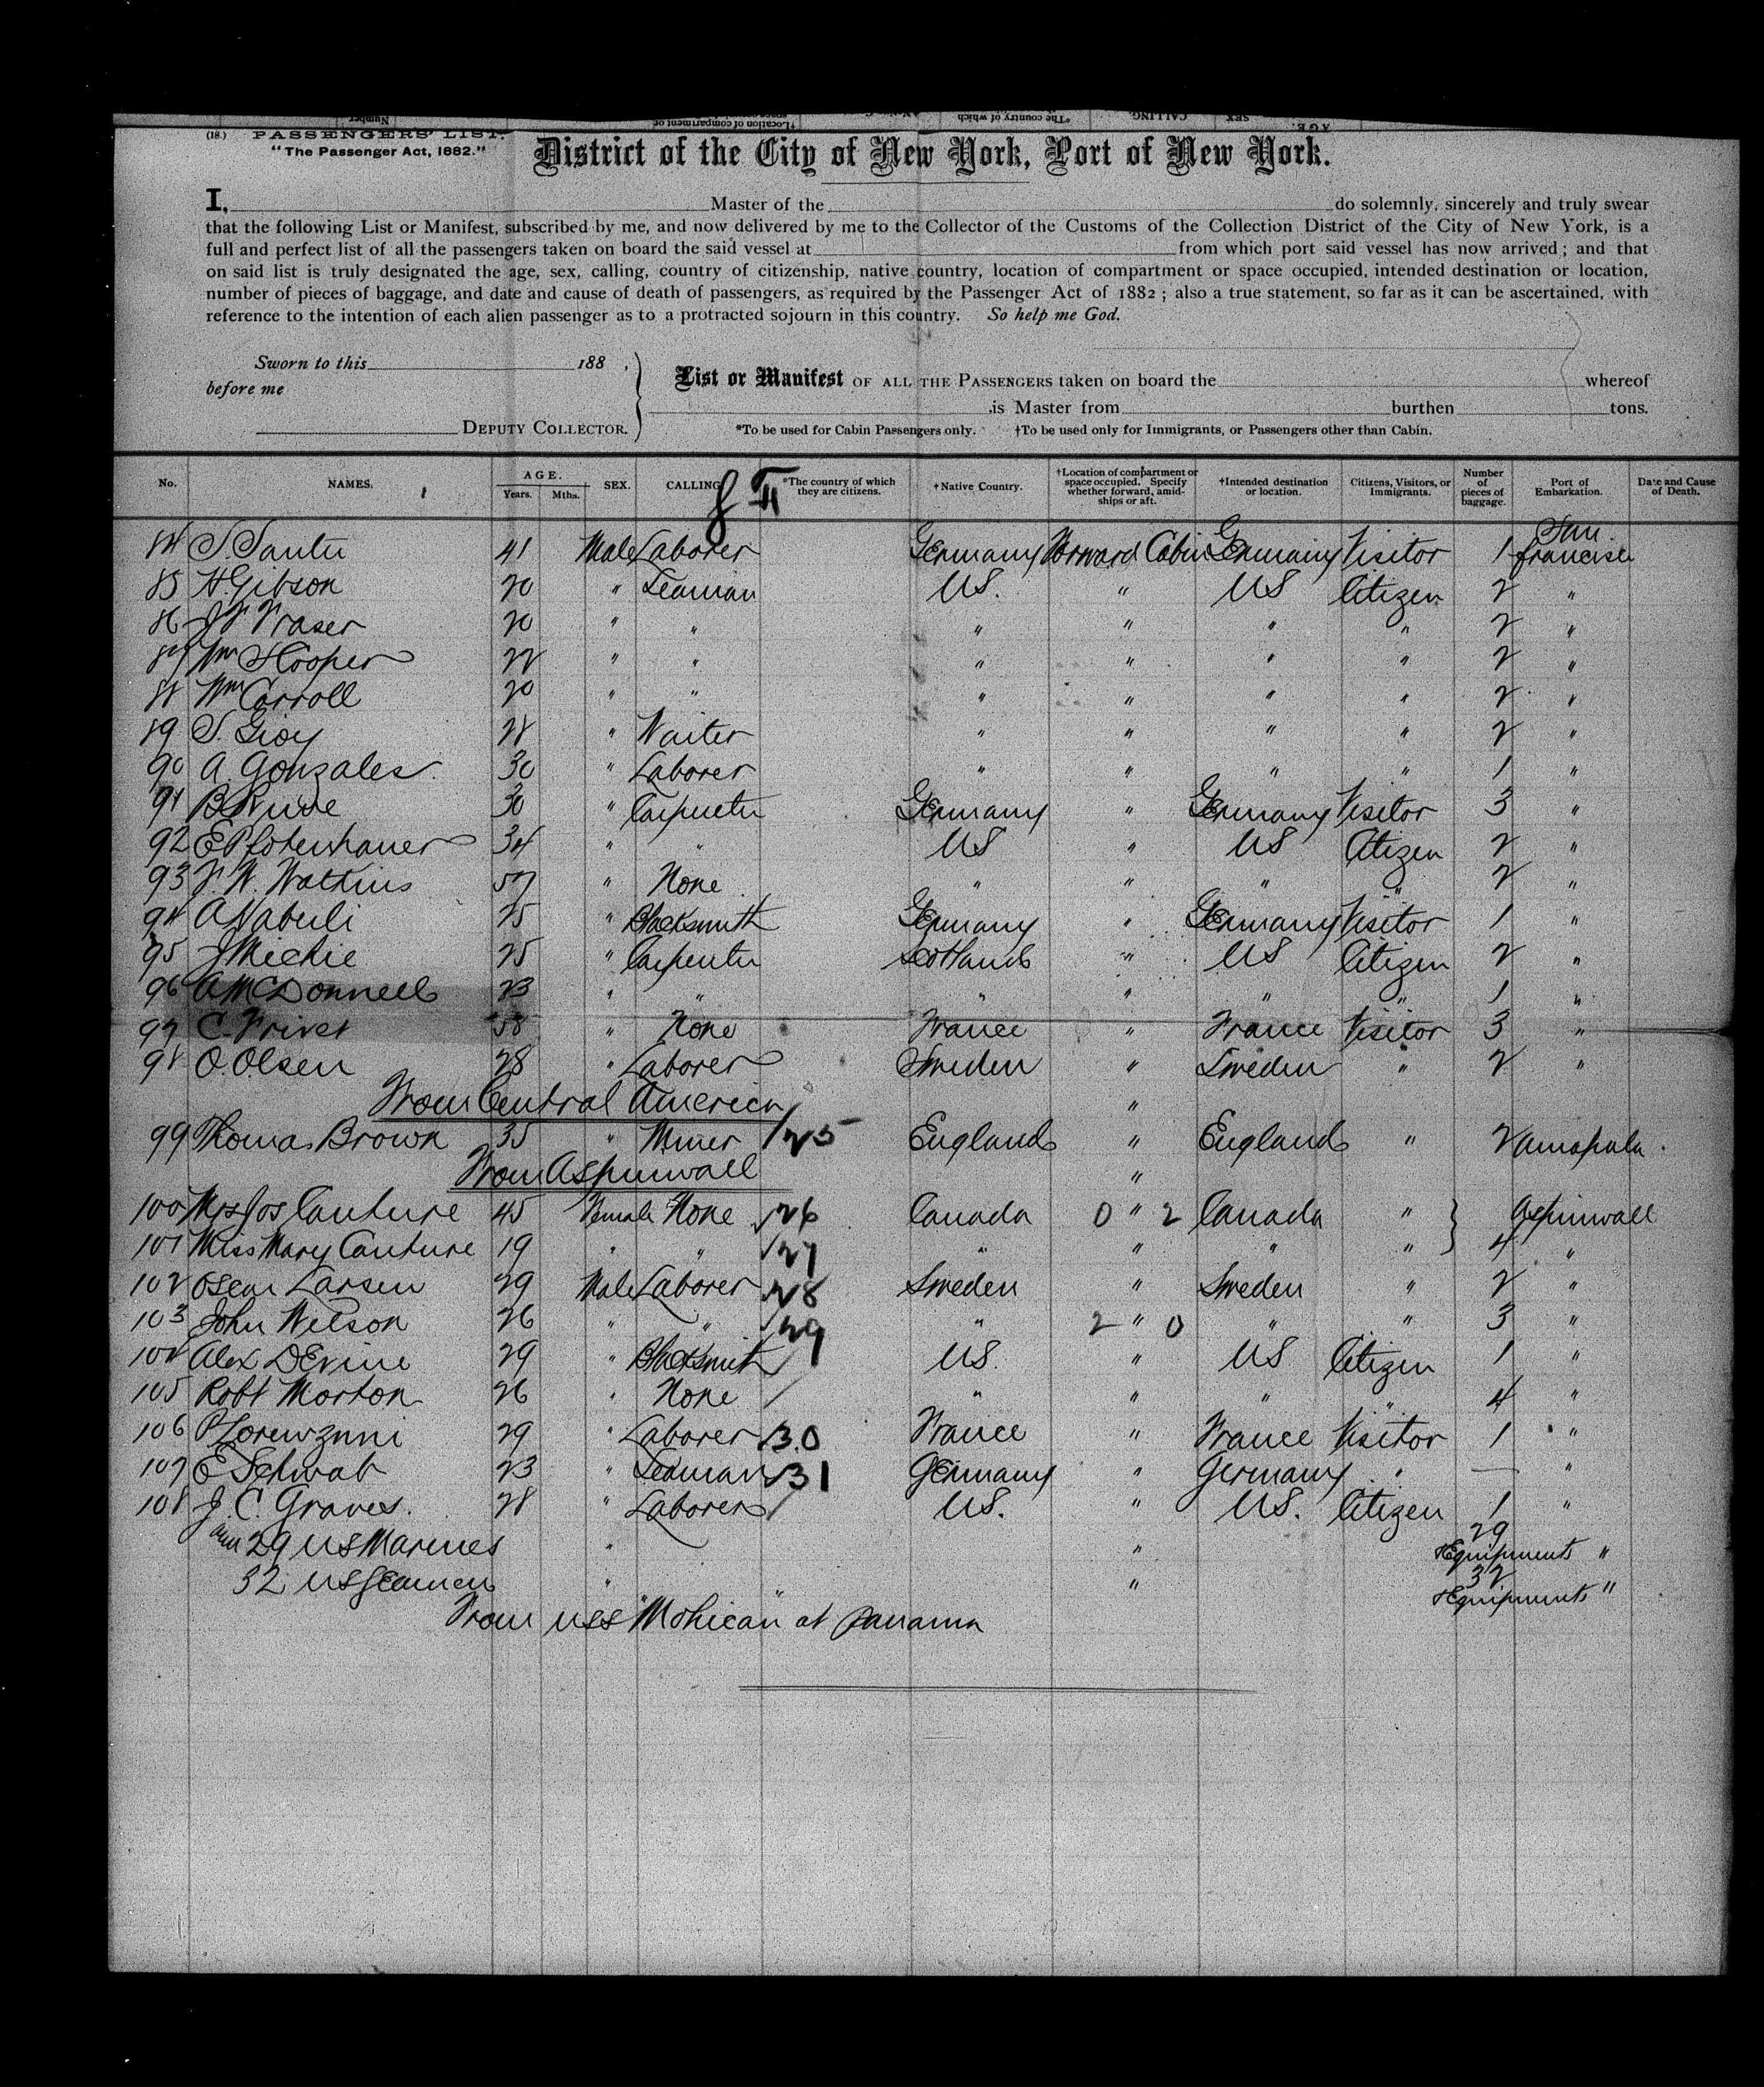 (18.) PASSENGERS' LIST.
"The Passenger Act, 1882."
District of the City of New York, Port of New York.
I, Master of the do solemnly, sincerely and truly swear
that the following List or Manifest, subscribed by me, and now delivered by me to the Collector of the Customs of the Collection District of the City of New York, is a
full and perfect list of all the passengers taken on board the said vessel at from which port said vessel has now arrived; and that
on said list is truly designated the age, sex, calling, country of citizenship, native country, location of compartment or space occupied, intended destination or location,
number of pieces of baggage, and date and cause of death of passengers, as required by the Passenger Act of 1882; also a true statement, so far as it can be ascertained, with
reference to the intention of each alien passenger as to a protracted sojourn in this country. So help me God.
Sworn to this 188 .
before me
DEPUTY COLLECTOR.
List or Manifest OF ALL THE PASSENGERS taken on board the whereof
is Master from burthen tons.
*To be used for Cabin Passengers only. †To be used only for Immigrants, or Passengers other than Cabin.
No. NAMES. AGE. Years. Mths. SEX. CALLING *The country of which they are citizens. †Native Country. †Location of compartment or space occupied. Specify whether forward, amidships or aft. †Intended destination or location. Citizens, Visitors, or Immigrants. Number of pieces of baggage. Port of Embarkation. Date and Cause of Death.
84 S. 41 Male Laborer Germany Forward Cabin Germany Visitor 1 San Francisco
85 H. Gibson 20 " Seaman US. " US Citizen 2 "
86 J F Fraser 20 " " " " " " 2 "
87 Wm Hooper 22 " " " " " " 2 "
88 Wm Carroll 20 " " " " " " 2 "
89 S. Gioy 28 " Waiter " " " " 2 "
90 A. Gonzales 30 " Laborer " " " " 1 "
91 30 " Carpenter Germany " Germany Visitor 3 "
92 E Pfotenhauer 34 " " US " US Citizen 2 "
93 F. W. Watkins 57 " None " " " " 2 "
94 A Nabuli 25 " Blacksmith Germany " Germany Visitor 1 "
95 J Michie 25 " Carpenter Scotland " US Citizen 2 "
96 A McDonnell 23 " " " " " " 1 "
97 C. Privet 58 " None France " France Visitor 3 "
98 O. Olsen 28 " Laborer Sweden " Sweden " 2 "
From Central America "
99 Thomas Brown 35 " Miner 25 England " England " 2 Amapala
From Aspinwall "
100 Mrs Jos Couture 45 Female None 26 Canada 0 " 2 Canada " Aspinwall
101 Miss Mary Couture 19 " " 27 " " " " 4 "
102 Oscar Larsen 29 Male Laborer 28 Sweden " Sweden " 2 "
103 John Wilson 26 " " 29 " 2 " 0 " " 3 "
104 Alex DEvine 29 " Blacksmith US. " US Citizen 1 "
105 Robt Morton 26 " None " " " " 4 "
106 P Lorenzini 29 " Laborer 30 France " France Visitor 1 "
107 E Schwab 23 " Seaman 31 Germany " Germany " — "
108 J. C. Graves. 28 " Laborer US. " US. Citizen 1 "
29 US Marines " " 29 Equipments "
32 US Seamen " " " 32 Equipments "
From USS "Mohican" at Panama